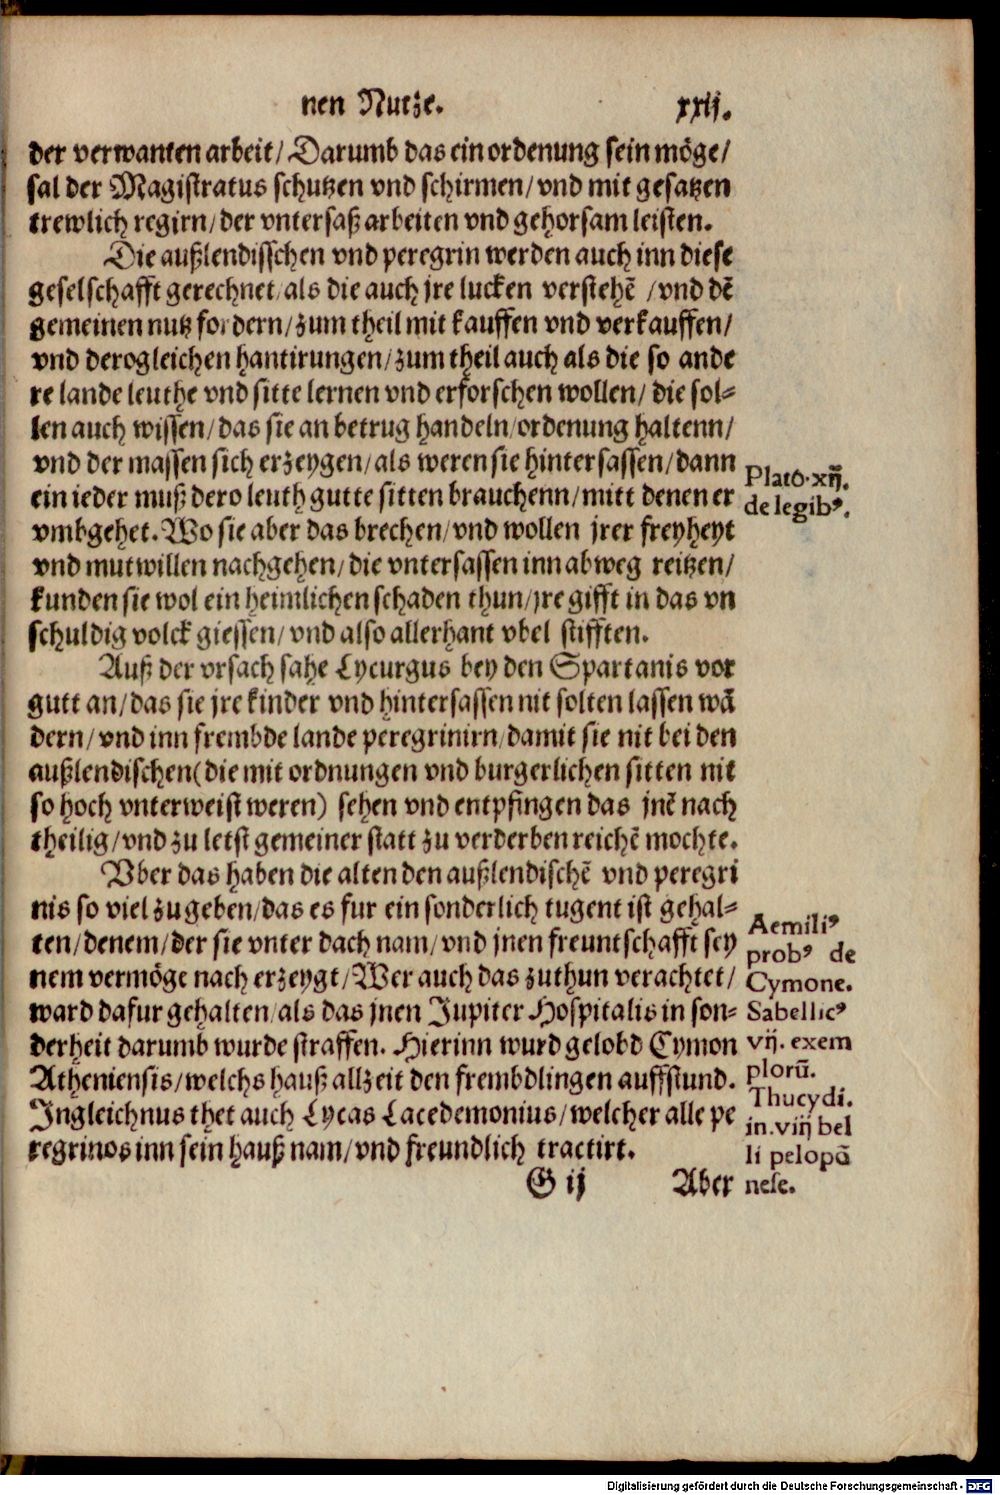 nen Nutze. xxij.
der verwanten arbeit/ Darumb das ein ordenung sein möge/
sal der Magistratus schutzen vnd schirmen/ vnd mit gesatzen
trewlich regirn/ der vntersaß arbeiten vnd gehorsam leisten.
Die außlendisschen vnd peregrin werden auch inn diese
geselschafft gerechnet/ als die auch jre lucken verstehē /vnd dē
gemeinen nutz fordern/ zum theil mit kauffen vnd verkauffen/
vnd derogleichen hantirungen/ zum theil auch als die so ande
re lande leuthe vnd sitte lernen vnd erforschen wollen/ die sol⸗
len auch wissen/ das sie an betrug handeln/ ordenung haltenn/
vnd der massen sich erzeygen/ als weren sie hintersassen/ dann
ein ieder muß dero leuth gutte sitten brauchenn/ mitt denen er
vmbgehet. Wo sie aber das brechen/ vnd wollen jrer freyheyt
vnd mutwillen nachgehen/ die vntersassen inn abweg reitzen/
kunden sie wol ein heimlichen schaden thun/ jre gifft in das vn
schuldig volck giessen/ vnd also allerhant vbel stifften.
Auß der vrsach sahe Lycurgus bey den Spartanis vor
gutt an/ das sie jre kinder vnd hintersassen nit solten lassen wā
dern/ vnd inn frembde lande peregrinirn/ damit sie nit bei den
außlendischen (die mit ordnungen vnd burgerlichen sitten nit
so hoch vnterweist weren) sehen vnd entpfingen das jnē nach
theilig/ vnd zu letst gemeiner statt zu verderben reichē mochte.
Vber das haben die alten den außlendischē vnd peregri
nis so viel zugeben/ das es fur ein sonderlich tugent ist gehal⸗
ten/ denem/ der sie vnter dach nam/ vnd jnen freuntschafft sey
nem vermöge nach erzeygt/ Wer auch das zuthun verachtet/
ward dafur gehalten/ als das jnen Jupiter Hospitalis in son⸗
derheit darumb wurde straffen. Hierinn wurd gelobd Cymon
Atheniensis/ welchs hauß allzeit den frembdlingen auffstund.
Jngleichnus thet auch Lycas Lacedemonius/ welcher alle pe
regrinos inn sein hauß nam/ vnd freundlich tractirt.
G ij Aber
Plato. xij.
de legibꝰ.
Aemiliꝰ
probꝰ de
Cymone.
Sabellicꝰ
vij. exem
plorū.
Thucydi.
in. viij bel
li pelopō
nese.
Digitalisierung gefördert durch die Deutsche Forschungsgemeinschaft - DFG